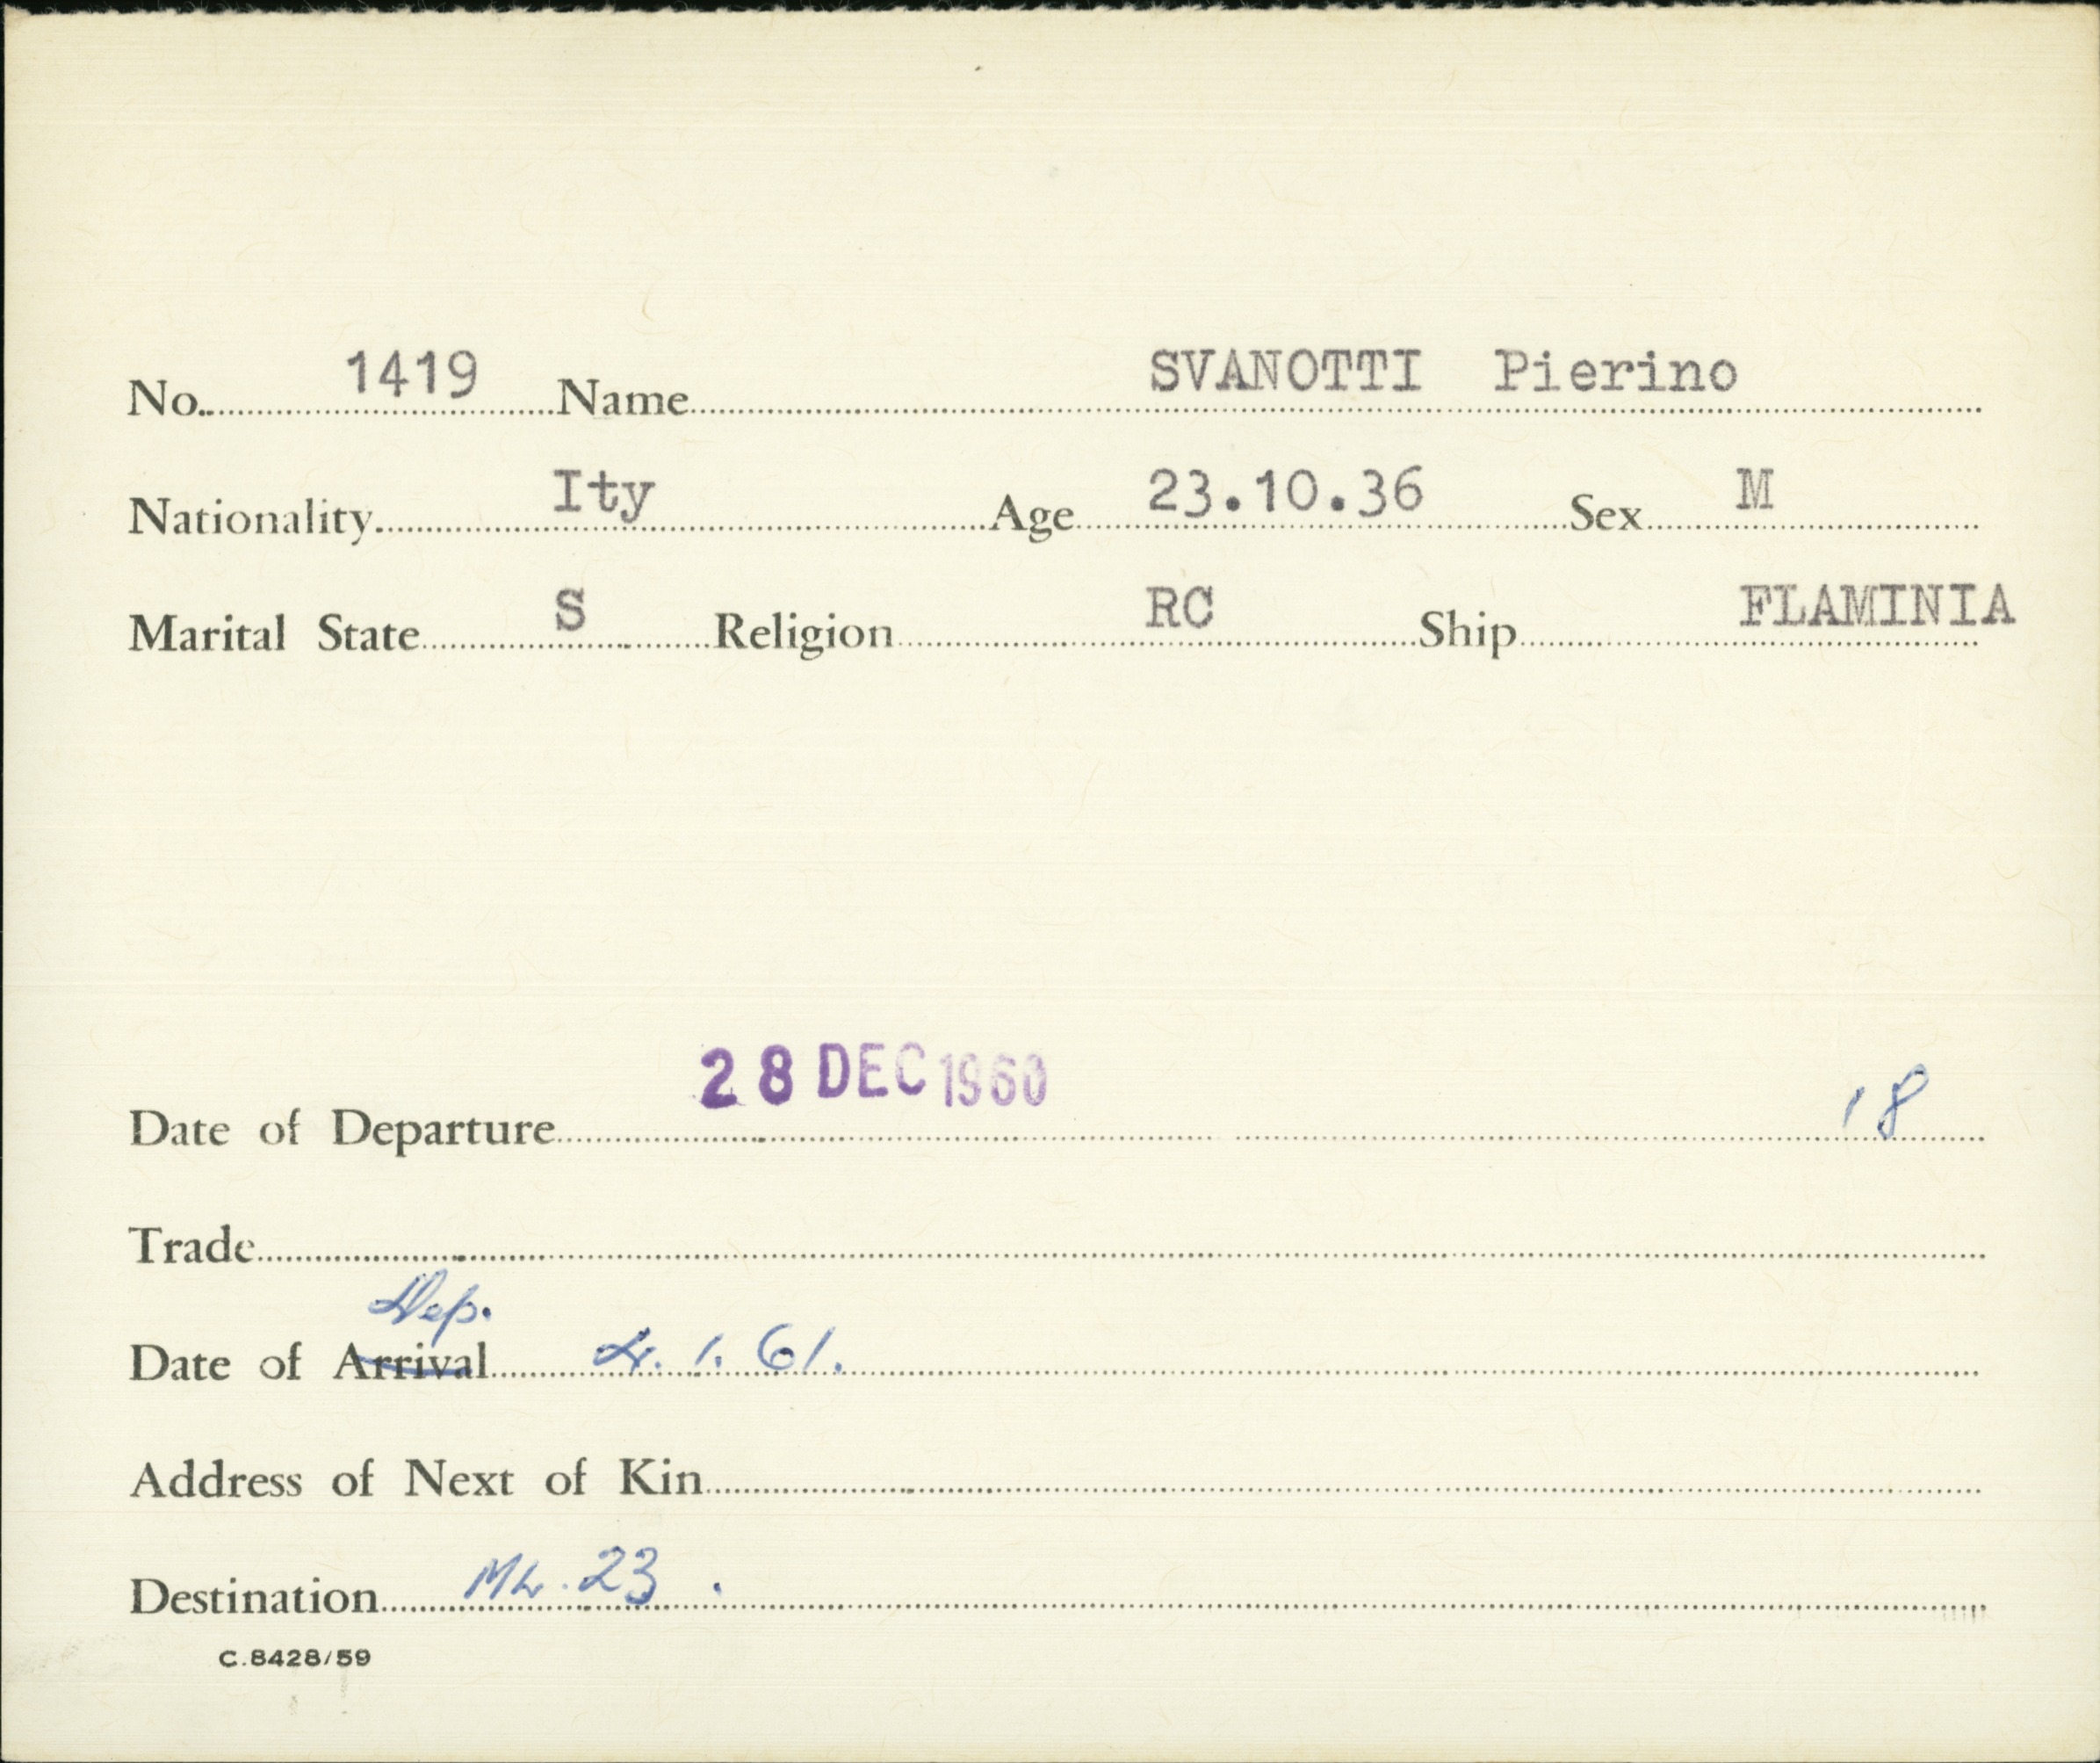 No. 1419 Name SVANOTTI Pierino
Nationality Ity Age 23.10.36 Sex M
Marital State S Religion RC Ship FLAMINIA
28 DEC 1960
Date of Departure 18
Trade
Dep.
Date of Arrival 4.1.61.
Address of Next of Kin
Destination 23.
C.8428/59